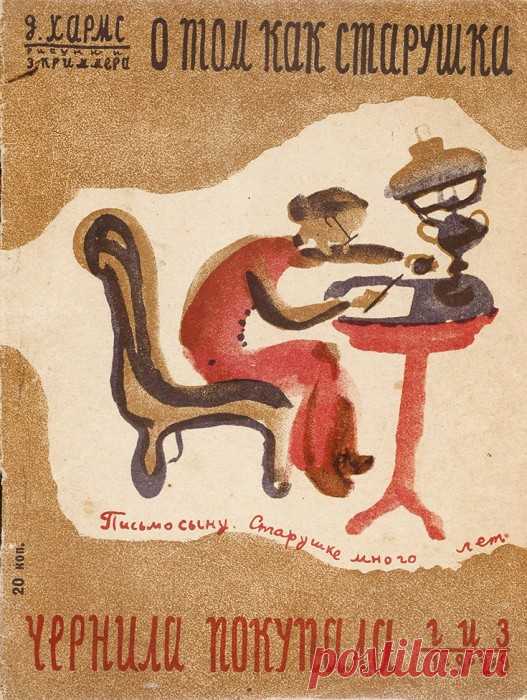 Д. ХАРМС
РИСУНКИ
Э. КРИММЕРА
О ТОМ КАК СТАРУШКА
Письмо сыну. Старушке много лет.
20 коп.
ЧЕРНИЛА ПОКУПАЛА
ГИЗ
postila.ru